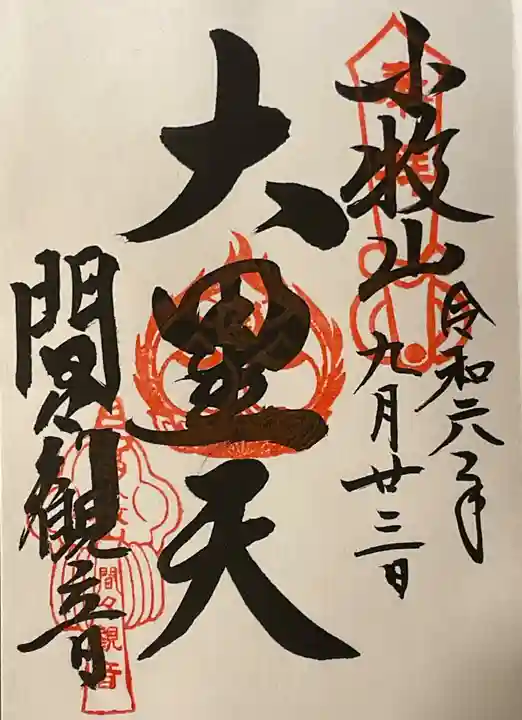 奉拝
小牧山
令和六年
九月廿三日
大黒天
間々観音
間々観音